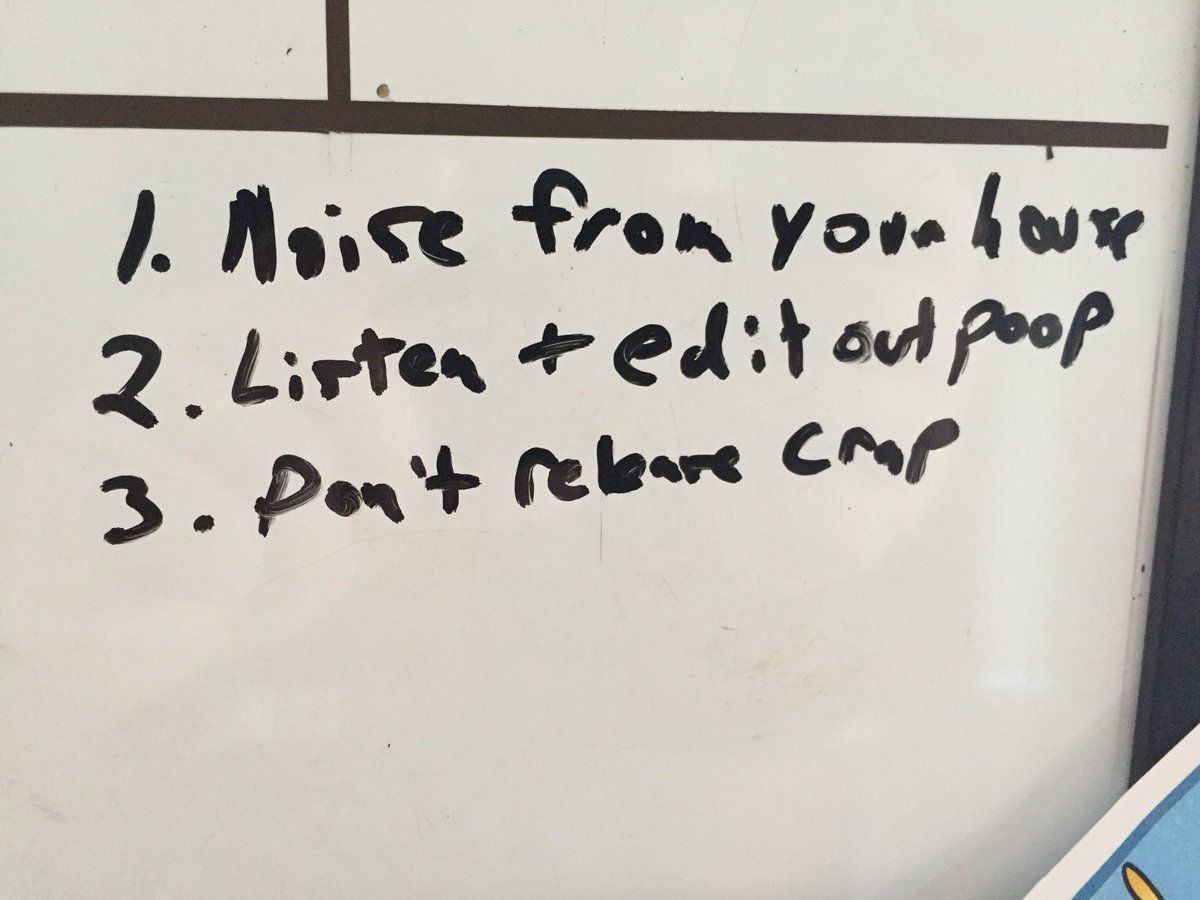 1. Noise from your house
2. Listen + edit out poop
3. Don't release crap